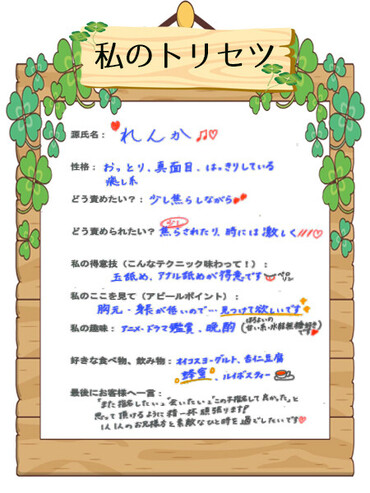 私のトリセツ
源氏名：れんか♫♡
性格：おっとり、真面目、はっきりしている
癒し系
どう責めたい？：少し焦らしながら
少し
どう責められたい？：焦らされたり、時には激しく!!!♡
私の得意技（こんなテクニック味わって！）：
玉舐め、アナル舐めが得意です
私のここを見て（アピールポイント）：
胸元・身長が低いので…見つけて欲しいです
私の趣味：アニメ・ドラマ鑑賞、晩酌
好きな食べ物、飲み物：オイコスヨーグルト、杏仁豆腐
蜂蜜、ルイボスティー
最後にお客様へ一言：
"また指名したい"、"会いたい"、"この子指名して良かった"と
思って頂けるように精一杯頑張ります!
1人1人のお兄様方と素敵なひと時を過ごしたいです♡